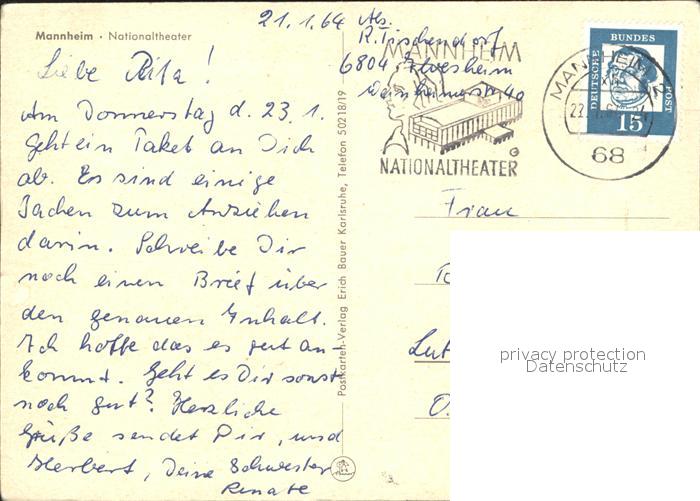 Mannheim · Nationaltheater
Liebe Rita!
Am Donnerstag d. 23. 1.
geht ein Paket an Dich
ab. Es sind einige
Sachen zum Anziehen
darin. Schreibe Dir
noch einen Brief über
den genauen Inhalt.
Ich hoffe das es gut an-
kommt. Geht es Dir sonst
noch gut? Herzliche
Grüße sendet Dir, und
Herbert, Deine Schwester
Renate
Postkarten-Verlag Erich Bauer Karlsruhe, Telefon 50218/19
21. 1. 64 Abs.
R. Tischendorf
6804 Ilvesheim
40
MANNHEIM
NATIONALTHEATER
MANNHEIM 2
68
DEUTSCHE
BUNDES
POST
15
Frau
Lut
O.
privacy protection
Datenschutz